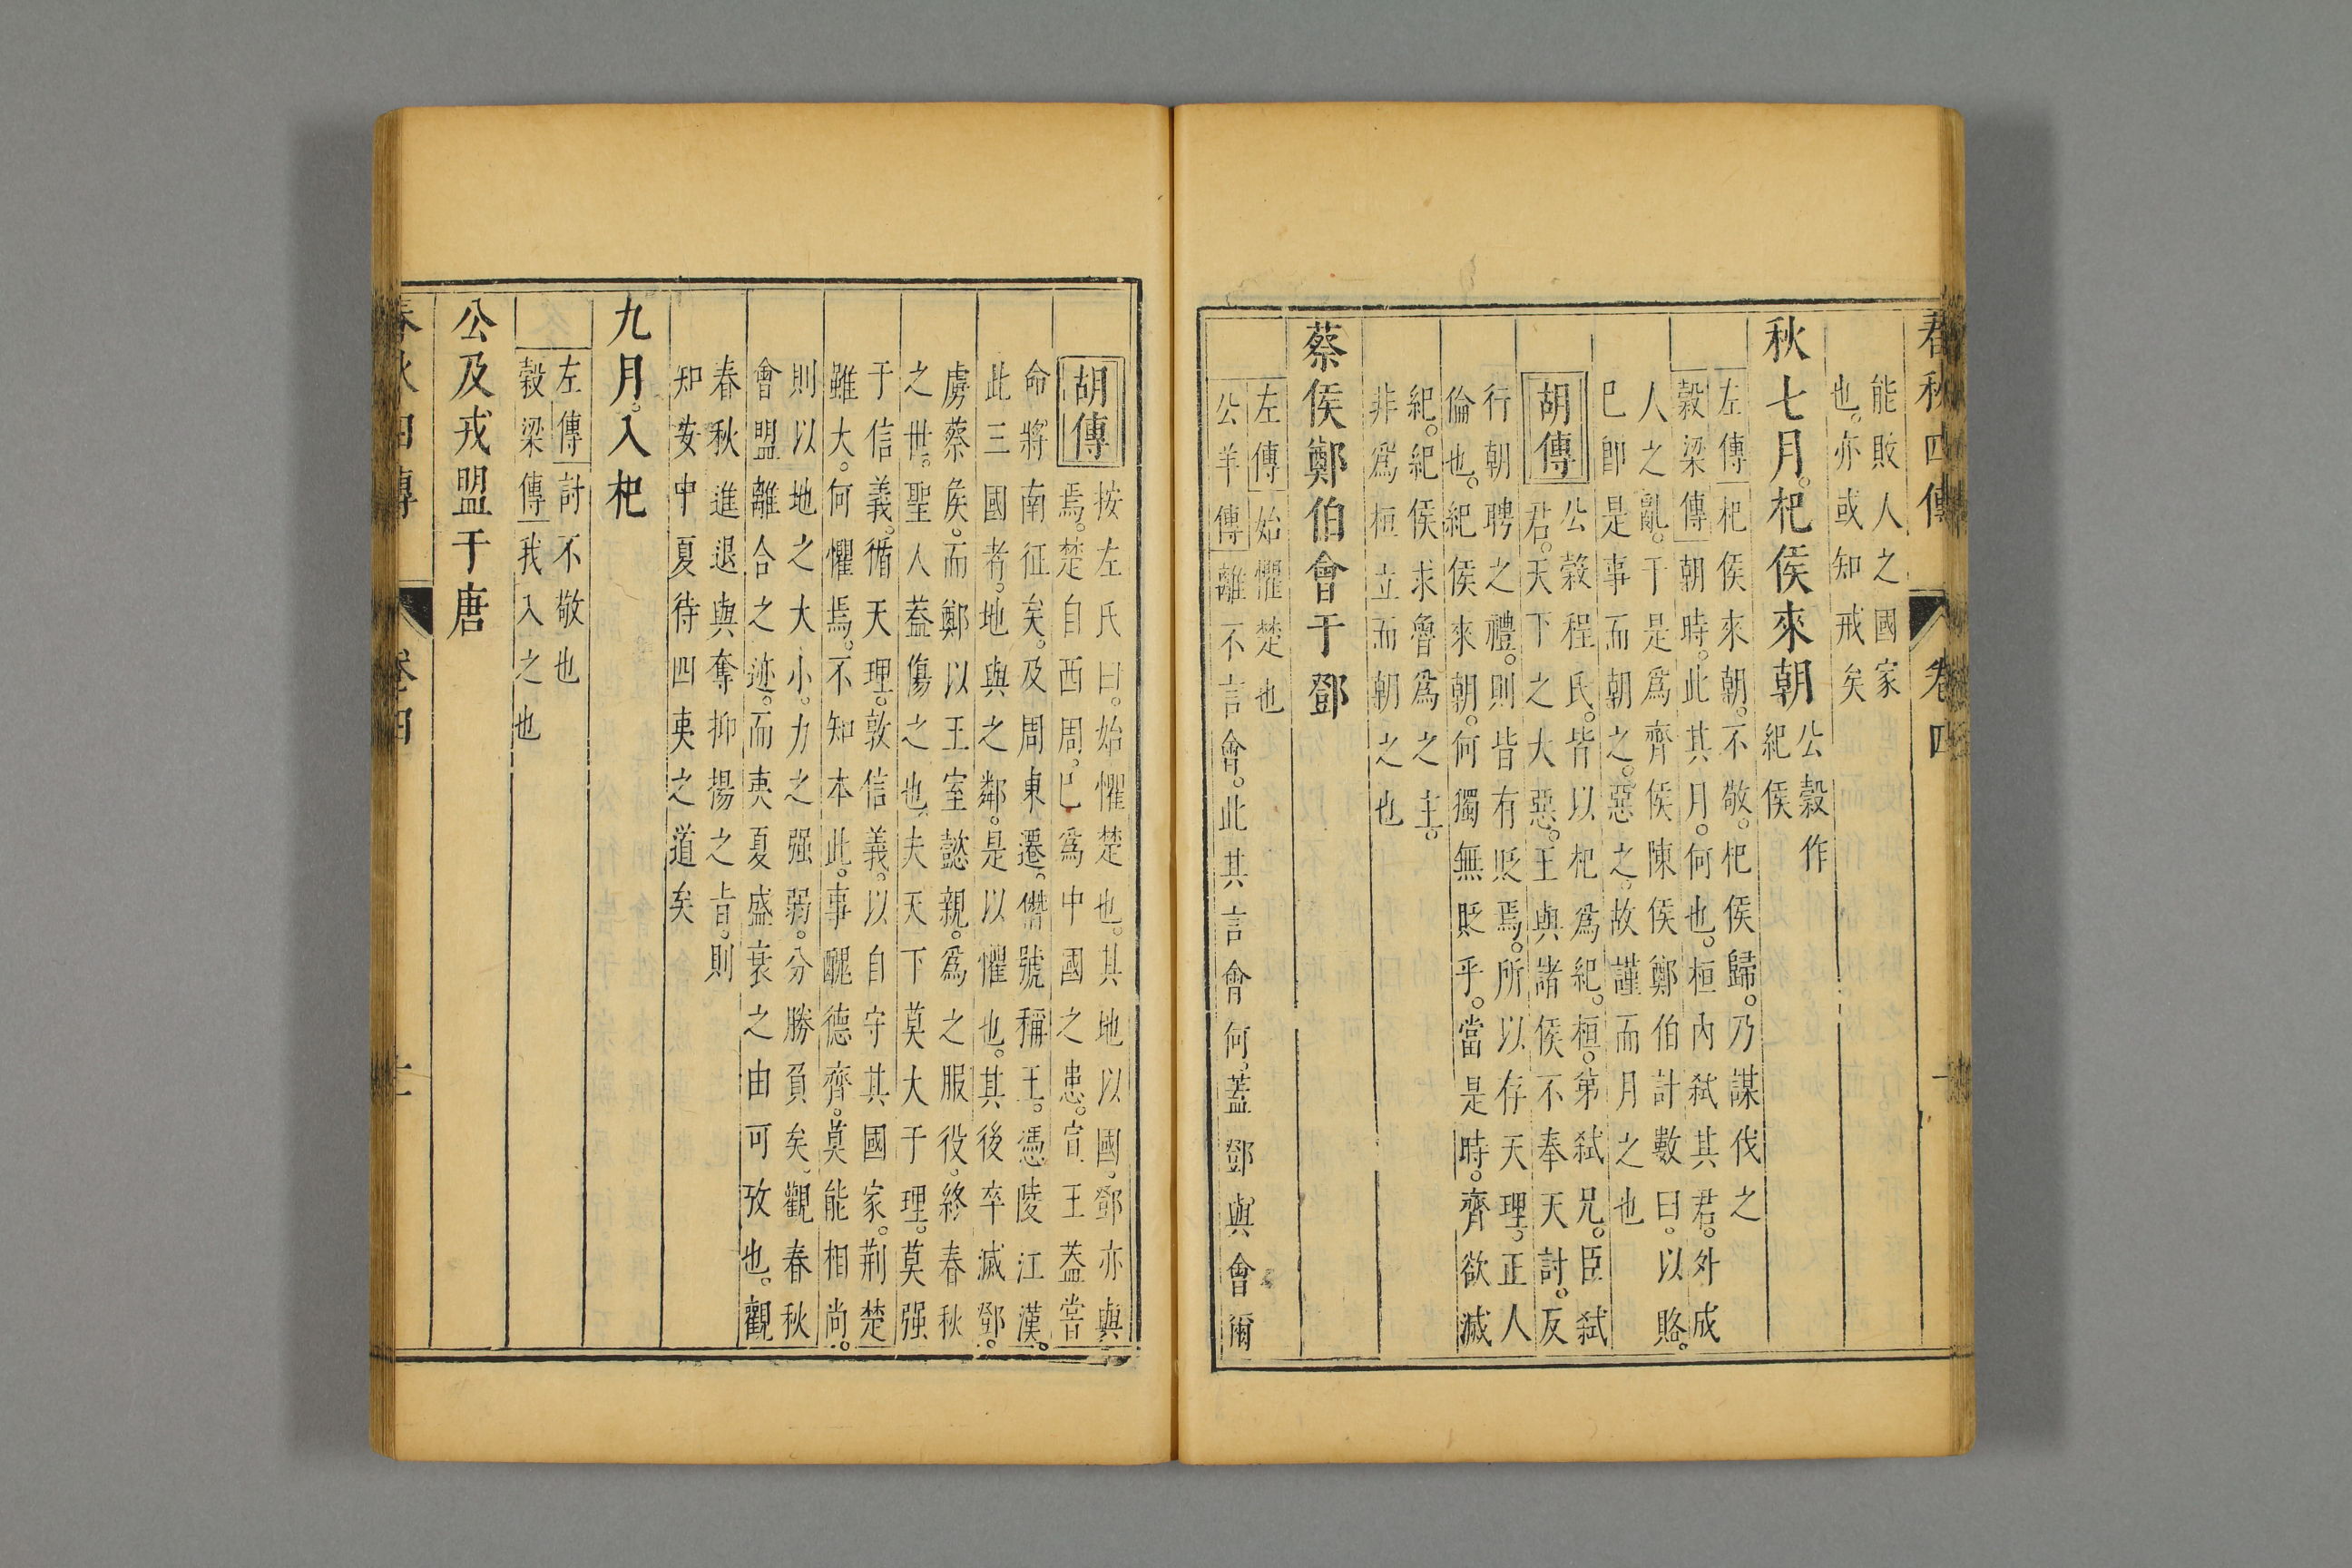 春秋四傳 卷四
能敗人之國家
也。亦或知戒矣
秋七月。杞侯來朝
公穀作
紀侯
左傳杞侯來朝。不敬。杞侯歸。乃謀伐之
穀梁傳朝時。此其月。何也。桓內弑其君。外成
人之亂。于是爲齊侯陳侯鄭伯計數曰。以賂。
巳卽是事而朝之。惡之。故謹而月之也
胡傳公穀程氏。皆以杞爲紀。桓。第弑兄。臣弑
君。天下之大惡。王與諸侯不奉天討。反
行朝聘之禮。則皆有貶焉。所以存天理。正人
倫也。紀侯來朝。何獨無貶乎。當是時。齊欲滅
紀。紀侯求魯爲之主。
非爲桓立而朝之也
蔡侯鄭伯會于鄧
左傳始懼楚也
公羊傳離不言會。此其言會何。蓋鄧與會爾
胡傳按左氏曰。始懼楚也。其地以國。鄧亦與
焉。楚自西周。巳爲中國之患。宣王蓋嘗
命將南征矣。及周東遷。僭號稱王。憑陵江漢。
此三國者。地與之鄰。是以懼也。其後卒滅鄧。
虜蔡侯。而鄭以王室懿親。爲之服役。終春秋
之世。聖人蓋傷之也。夫天下莫大于理。莫强
于信義。循天理。敦信義。以自守其國家。荆楚
雖大。何懼焉。不知本此。事醜德齊。莫能相尚。
則以地之大小。力之强弱。分勝負矣。觀春秋
會盟離合之迹。而夷夏盛衰之由可攷也。觀
春秋進退與奪抑揚之旨。則
知安中夏待四夷之道矣
九月。入杞
左傳討不敬也
穀梁傳我入之也
公及戎盟于唐
春秋四傳 卷四